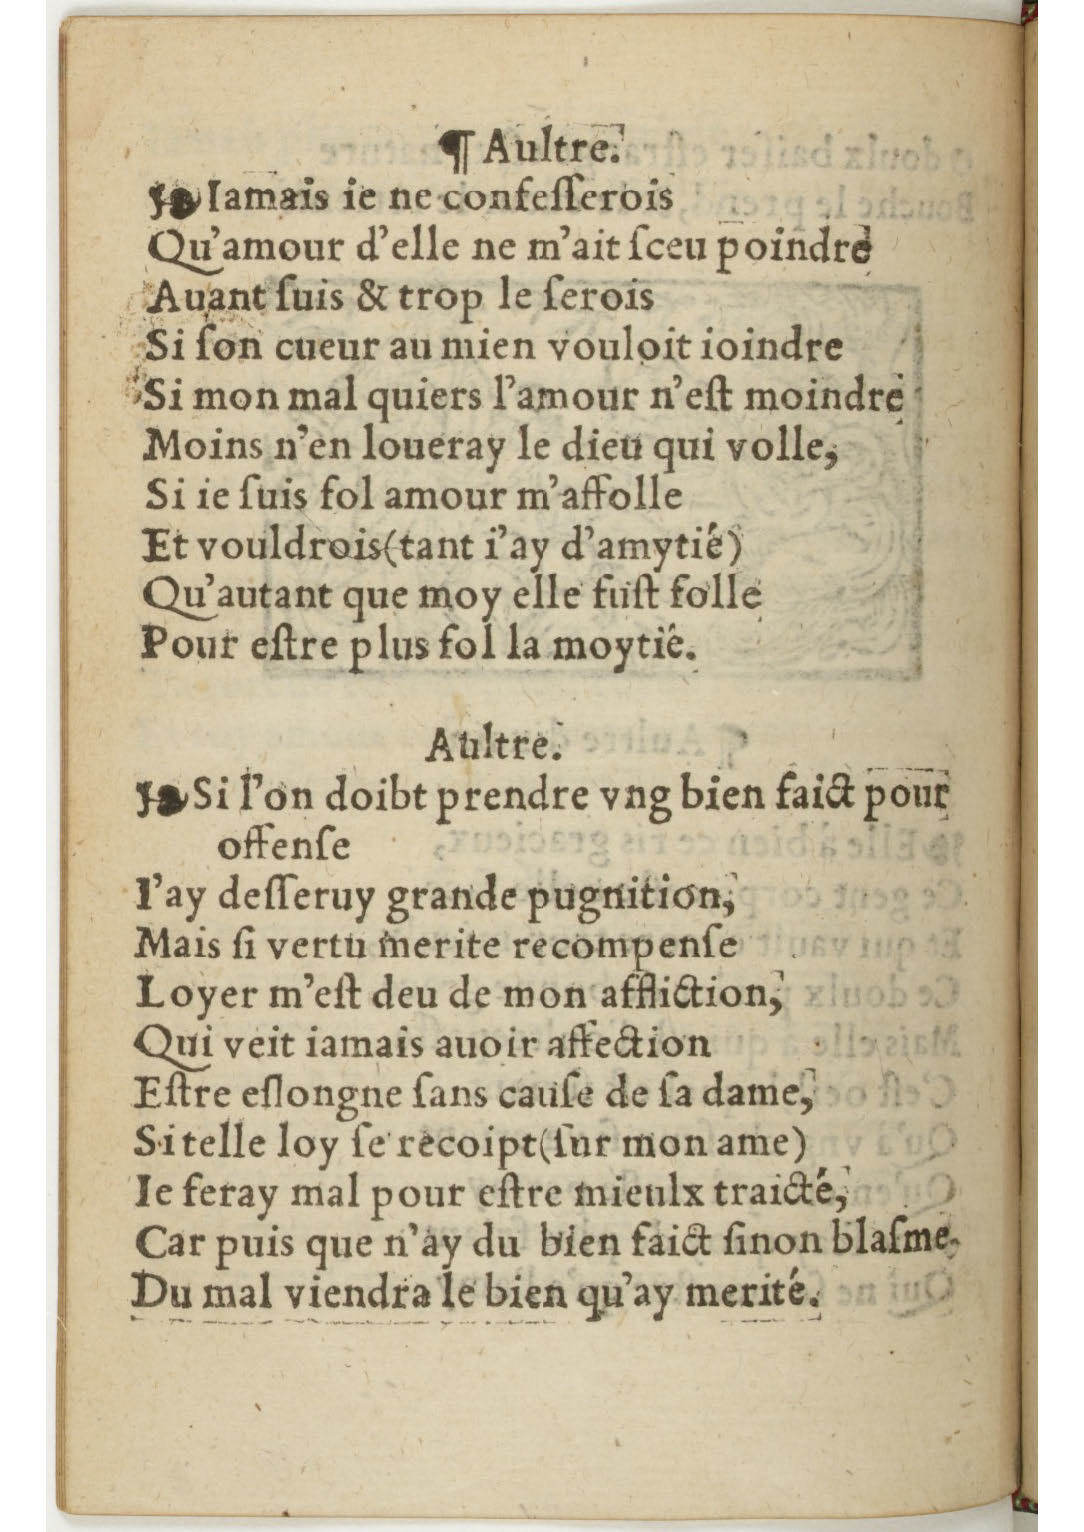 ¶ Aultre.
❧ Iamais ie ne confeſſerois
Qu'amour d'elle ne m'ait ſceu poindre
Auant ſuis & trop le ſerois
Si ſon cueur au mien vouloit ioindre
Si mon mal quiers l'amour n'eſt moindre
Moins n'en loueray le dieu qui volle,
Si ie ſuis fol amour m'affolle
Et vouldrois(tant i'ay d'amytié)
Qu'autant que moy elle fuſt folle
Pour eſtre plus fol la moytié.
Aultre.
❧ Si l'on doibt prendre vng bien faict pour
offenſe
I'ay deſſeruy grande pugnition,
Mais ſi vertu merite recompenſe
Loyer m'eſt deu de mon affliction,
Qui veit iamais auoir affection
Eſtre eſlongne ſans cauſe de ſa dame,
Si telle loy ſe recoipt(ſur mon ame)
Ie feray mal pour eſtre mieulx traicté,
Car puis que n'ay du bien faict ſinon blaſme.
Du mal viendra le bien qu'ay merité.